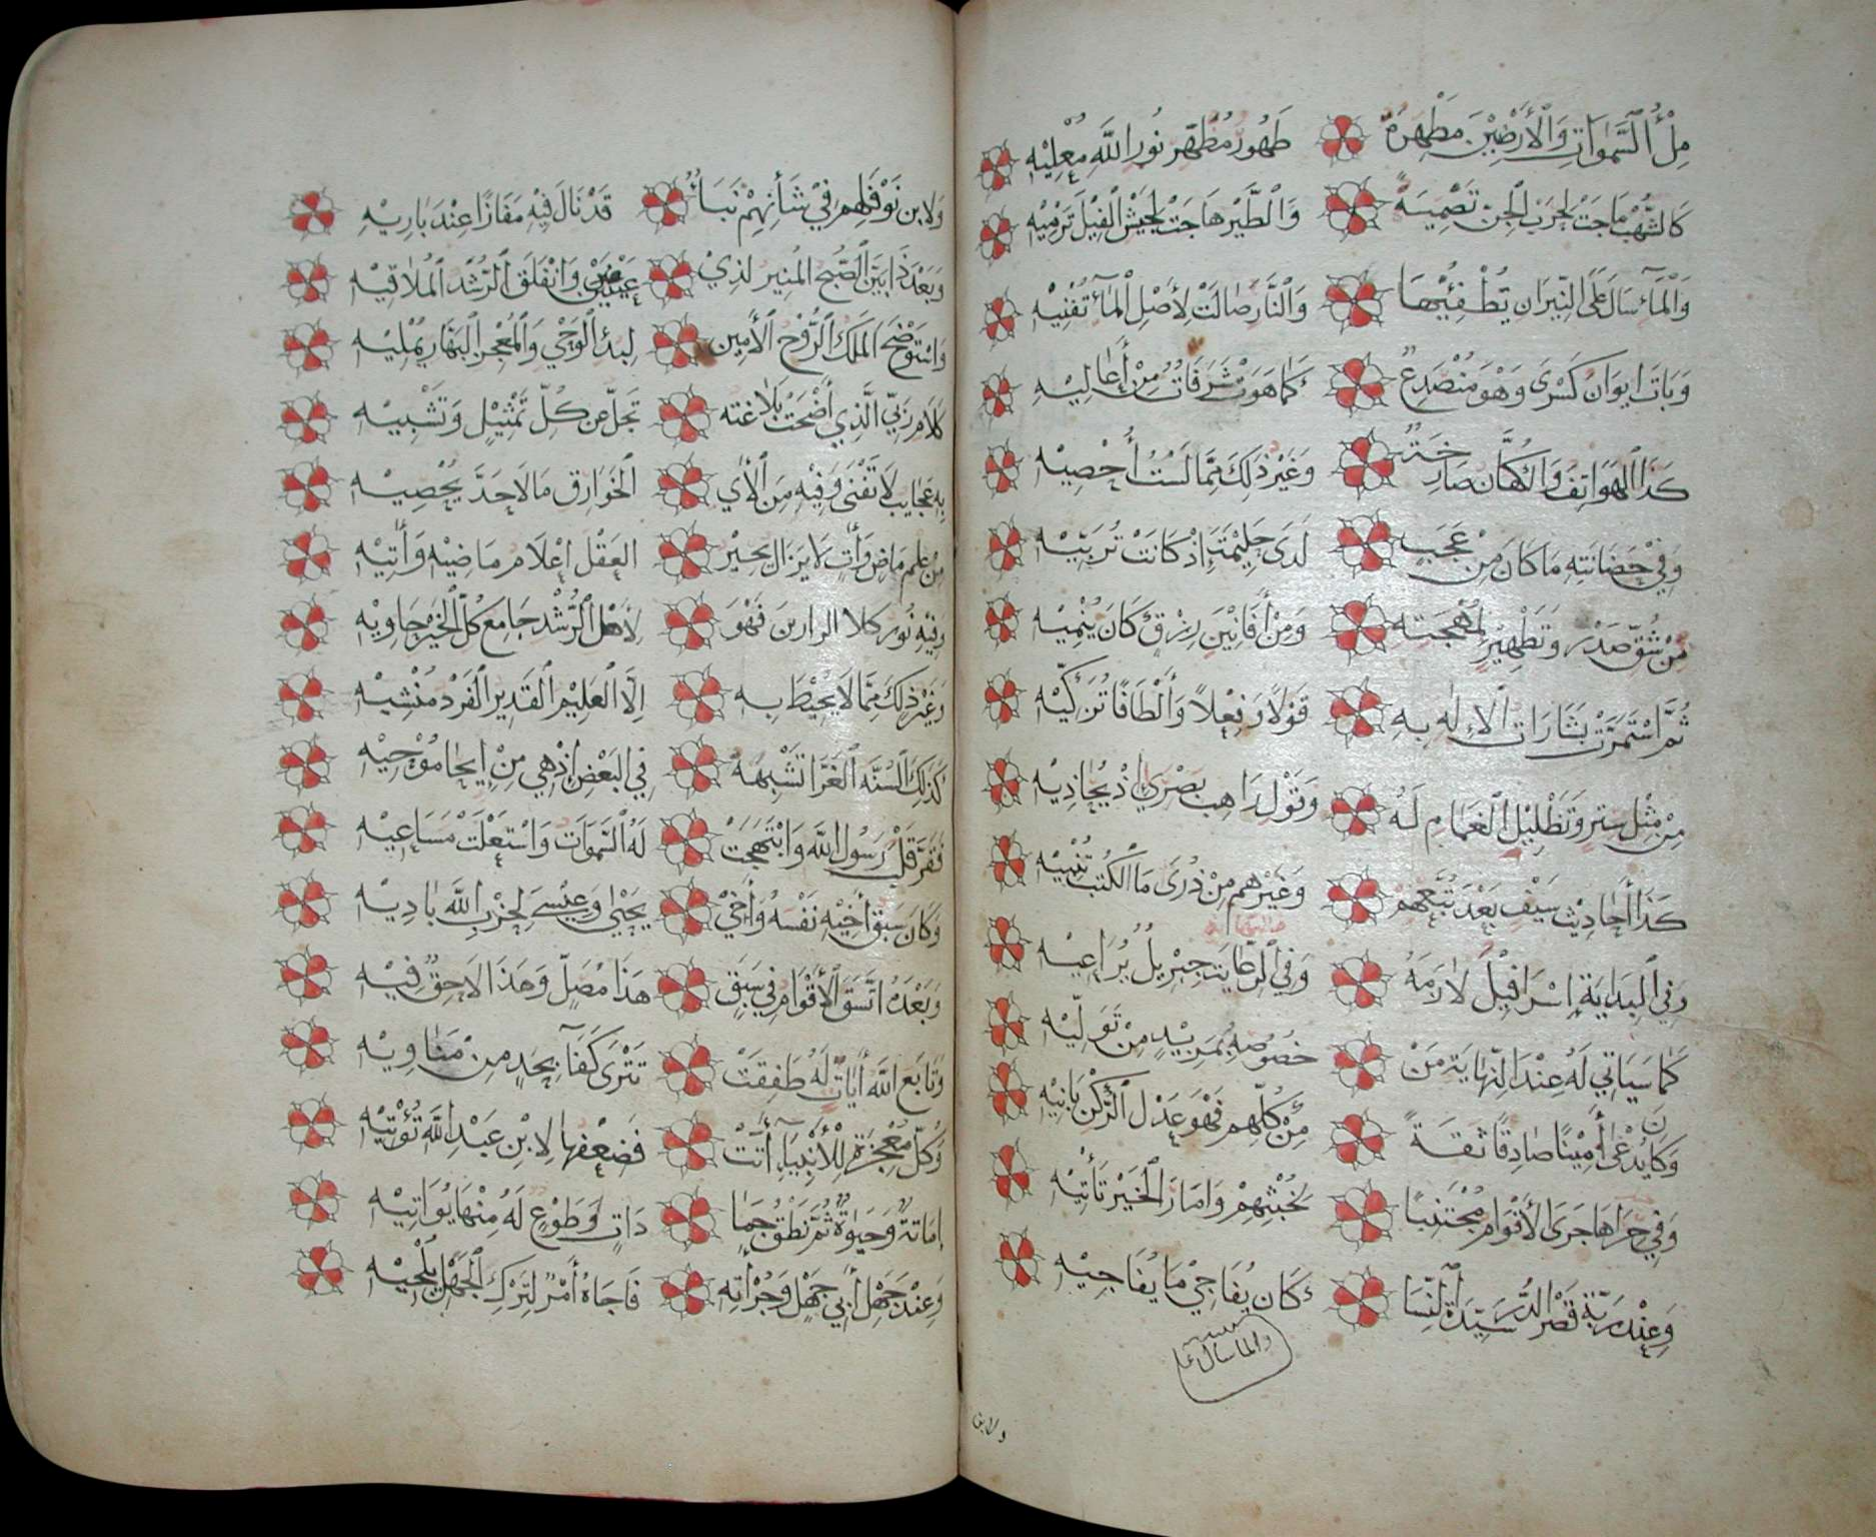 مِلْءُ السَّمٰوَاتِ وَالْأَرْضِيْنَ مَظْهَرُهُ طَهُورُ مُظْهِر نُورِ اللَّهِ مُعْلِيْهِ
كَالشُّهْبِ مَاجَتْ لِحَرْبِ الْجِنّ تَصْمِيَةً وَالطَّيْر هَاجَتْ لِجَيْشِ الْفِيْلِ تَرْمِيْهِ
وَالْمَآءِ سَالَ عَلَى النِّيْرَانِ يُطْفِئُهَا وَالنَّارِ صَالَتْ لِأَصْلِ الْمَآءِ تُفْنِيْهِ
وَبَاتَ ايوَانُ كَسْرَى وَهْوَ مُنْصَدِعٌ كَمَا هَوَتْ شُرَفَاتٌ مِنْ أَعَالِيْهِ
كَذَا الْهَوَاتِفُ وَالْكُهَّانُ صَارِخَةٌ وَغَيْرُ ذٰلِكَ مِمَّا لَسْتُ أُحْصِيْهِ
وَفِيْ حَضَانَتِهِ مَا كَانَ مِنْ عَجَبٍ لَدَى حَلِيْمَتِهِ إِذْ كَانَتْ تُرَبِّيْهِ
مِنْ شَقِّ صَدْرٍ وَتَطْهِيْرٍ لِمُهْجَتِهِ وَمِنْ أَفَانِيْنَ رِزْقٍ كَانَ يُنْمِيْهِ
ثُمَّ اسْتَمَرَّتْ بَشَارَاتُ الْإِلٰهِ بِهِ قَوْلاً وَفِعْلاً وَأَلْطَافًا تُزَكِّيْهِ
مِنْ مِثْلِ سِتْرٍ وَتَظْلِيْلِ الْغَمَامِ لَهُ وَقَوْلِ رَاهِبِ بَصْرَي إِذْ يُحَاذِيْهِ
كَذَا أَحَادِيْث سَيْفٍ بَعْدَ تُبَّعِهِمْ وَغَيْرِهِم مِنْ ذُرَى مَا الْكُتْب تُنْبِيْهِ
وَفِي الْبِدَايَةِ إِسْرَافِيْلُ لَازَمَهُ وَفِي الرِّعَايَةِ جِبْرِيلُ يُرَاعِيْهِ
كَمَا سَيَاتِي لَهُ عِنْدَ النِّهَايَةِ مَنْ خُصُوصُهُ بِمَزِيْدٍ مِنْ تَوَلِّيْهِ
وَكَانَ يُدْعَى أَمِيْنًا صَادِقًا ثِقَةً مِنْ كُلِّهِم فَهْوَ عَدْلُ الرُّكْنِ بَانِيْهِ
وَفِي حِرَاهَا جَرَى الْأَقْوَامَ مُجْتَنِبًا لِخُبْثِهِمْ وَامَارُ الْخَيْرِ تَأْتِيْهِ
وَعِنْدَ رَبَّةِ قَصْرِ الدُّرِّ سَيِّدَةِ النِّسَا كَانَ يُفَاجِيْ مَا يُفَاجِيْهِ
والما سال على
ولابن
وَلِابن نَوْفَلِهِم فِيْ شَأْنِهِمْ نَبَأٌ قَدْ نَالَ فِيْهِ مَفَازًا عِنْدَ بَارِيْهِ
وَبَعْدَ ذَا بَيَّنَ الصُّبْحُ الْمُنِيرُ لِذِيْ عَيْنَيْنِ وَانْفَلَقَ الرُّشْدُ الْمُلَاقِيْهِ
وَاسْتَوْضَحَ الْمَلَكُ الرُّوْحُ الْأَمِيْنُ لِبدْءِ الْوَحْيِ وَالْمُعْجِزِ الْبَهَّارِ يُمْلِيْهِ
كَلَامَ رَبِّي الَّذِي أَضْحَتْ بَلَاغَتُه تَجِلُّ عَن كُلِّ تَمْثِيْلٍ وَتَشْبِيْهِ
بِهِ عَجَايِبُ لَا تَفْنَى وَفِيْهِ مِنَ الْأٰي الْخَوَارِق مَا لَا حَدَّ يُحْصِيْهِ
مِنْ عِلْمِ مَاضٍ وَأٰتٍ لَا يَزَالُ يُحِيْرُ الْعَقْلَ إِعْلَامُ مَاضِيْهِ وَأٰتِيْهِ
وَفِيْهِ نُورُ كلا الدارين فَهْوَ لِأَهْلِ الرُّشْدِ جَامِعُ كُلِّ الْخَيْرِ حَاوِيْهِ
وَغَيْرُ ذٰلِكَ مِمَّا لَا يُحِيْطُ بِهِ إِلَّا الْعَلِيْمُ الْقَدِيرُ الْفَرْدُ مُنْشِيْهِ
كَذٰلِكَ السُّنَّةُ الْغَرَّا تُشْبِهُهُ فِي الْبَعْضِ إِذْ هِيَ مِنْ إِيحَا مُوْحِيْهِ
فَقَرَّ قَلْبُ رَسُولِ اللَّهِ وَابْتَهَجَتْ لَهُ السَّمَوَات وَاسْتَعْلَتْ مَسَاعِيْهِ
وَكَانَ سَبَقَ أَخِيْهِ نَفْسَهُ وَأَخِيْ يَحْيٰى وَعِيْسَى لِحِزْبِ اللَّهِ بَادِيْهِ
وَبَعْدَهُ اتَّسَقَ الْأَقْوَامُ فِي سَبَقٍ هَذَا مُصَلٍّ وَهَذَا لَاحِقٌ فِيْهِ
وَتَابَعَ اللَّهُ أٰيَاتٍ لَهُ طَفِقَتْ تَتْرَى كَفَآءً بِحَدٍ مِنْ مَنَاوِيْهِ
وَكُلُّ مُعْجِزَةٍ لِلْأَنْبِيَآءِ أَتَتْ فَضِعْفُهَا لِابْنِ عَبْدِ اللَّهِ تُؤْتِيْهِ
إِمَاتَةٌ وَحَيٰوةٌ ثُمَّ نُطْقُ جَمَا دَاتٍ وَطَوْعٍ لَهُ مِنْهَا يُوَاتِيْهِ
وَعِنْدَ جَهْلِ أَبِي جَهْلٍ وَجُرْأَتِهِ فَاجَاهُ أَمْرٌ لِتَرْكِ الْجَهْلِ يُلْجِيْهِ